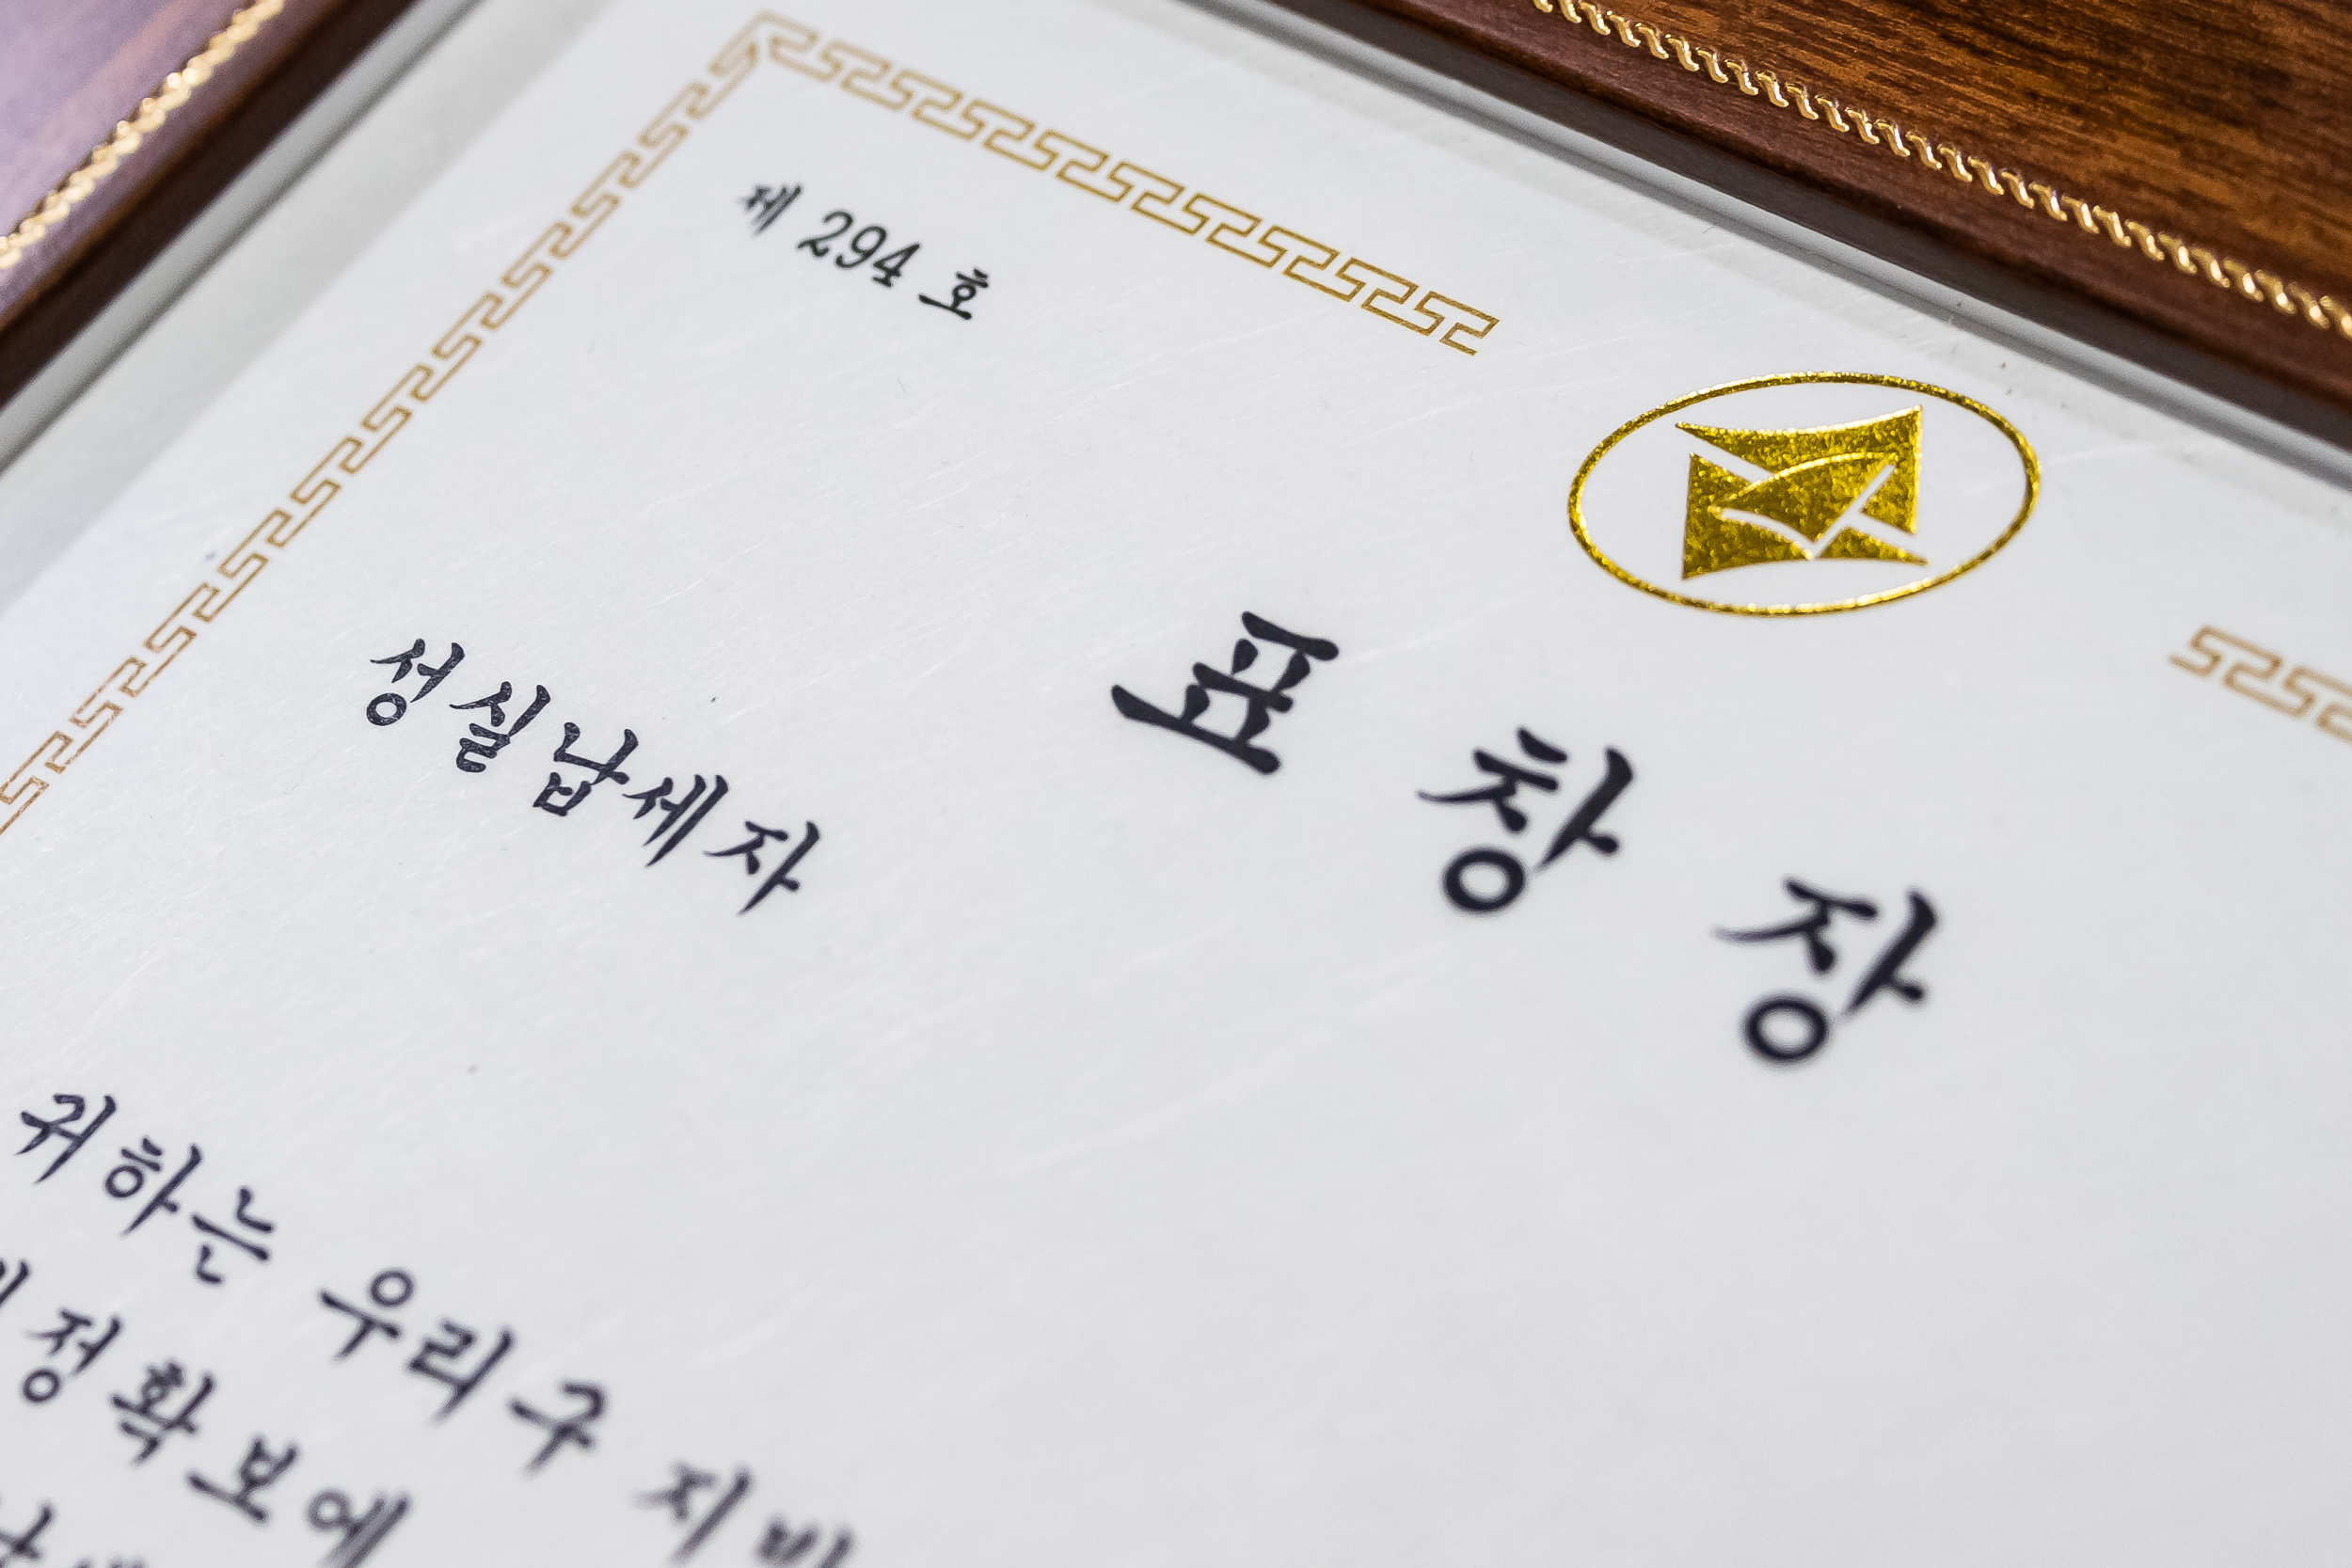 제 294 호
표창장
성실납세자
귀하는 우리구
정확보에